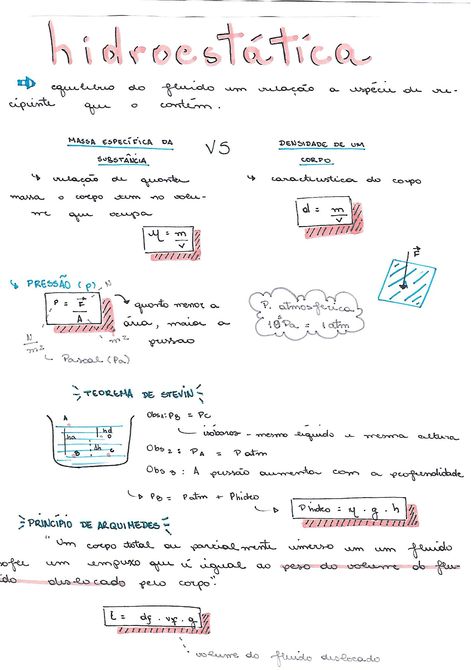 hidroestática
equilíbrio do fluido em relação a espécie de re-
cipiente que o contém.
MASSA ESPECÍFICA DA SUBSTÂNCIA
VS
DENSIDADE DE UM CORPO
↳ relação de quanta
massa o corpo tem no volu-
me que ocupa
μ = m/v
↳ característica do corpo
d = m/v
↳ PRESSÃO (p)
P = F/A
N
m²
N/m²
↳ Pascal (Pa)
quanto menor a
área, maior a
pressão
P. atmosférica
10⁵ Pa = 1 atm
F
TEOREMA DE STEVIN
A
ha
hd
D
Δh
B
C
Obs1: PB = PC
↳ isóbaros - mesmo líquido e mesma altura
Obs 2: PA = P atm
Obs 3: A pressão aumenta com a profundidade
↳ PB = Patm + Phidro
↳ Phidro = μ . g . h
PRINCÍPIO DE ARQUIMEDES
"Um corpo total ou parcialmente imerso em um fluido
sofre um empuxo que é igual ao peso do volume do flu-
ido deslocado pelo corpo"
E = df . vf . g
volume do fluido deslocado